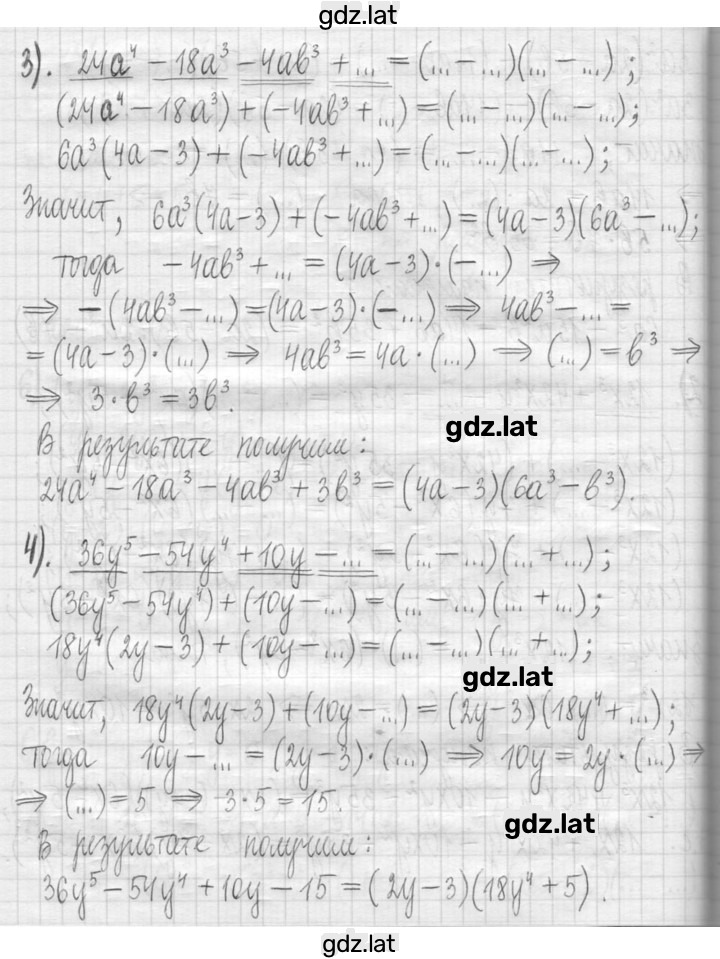 gdz.lat
3). 24a⁴ − 18a³ − 4ab³ + ... = (... − ...)(... − ...);
(24a⁴ − 18a³) + (−4ab³ + ...) = (... − ...)(... − ...);
6a³(4a − 3) + (−4ab³ + ...) = (... − ...)(... − ...);
Значит, 6a³(4a − 3) + (−4ab³ + ...) = (4a − 3)(6a³ − ...);
тогда −4ab³ + ... = (4a − 3)·(− ...) ⇒
⇒ −(4ab³ − ...) = (4a − 3)·(− ...) ⇒ 4ab³ − ... =
= (4a − 3)·(...) ⇒ 4ab³ = 4a·(...) ⇒ (...) = b³ ⇒
⇒ 3·b³ = 3b³.
gdz.lat
В результате получим:
24a⁴ − 18a³ − 4ab³ + 3b³ = (4a − 3)(6a³ − b³).
4). 36y⁵ − 54y⁴ + 10y − ... = (... − ...)(... + ...);
(36y⁵ − 54y⁴) + (10y − ...) = (... − ...)(... + ...);
18y⁴(2y − 3) + (10y − ...) = (... − ...)(... + ...);
gdz.lat
Значит, 18y⁴(2y − 3) + (10y − ...) = (2y − 3)(18y⁴ + ...);
тогда 10y − ... = (2y − 3)·(...) ⇒ 10y = 2y·(...) ⇒
⇒ (...) = 5 ⇒ −3·5 = 15.
gdz.lat
В результате получим:
36y⁵ − 54y⁴ + 10y − 15 = (2y − 3)(18y⁴ + 5).
gdz.lat